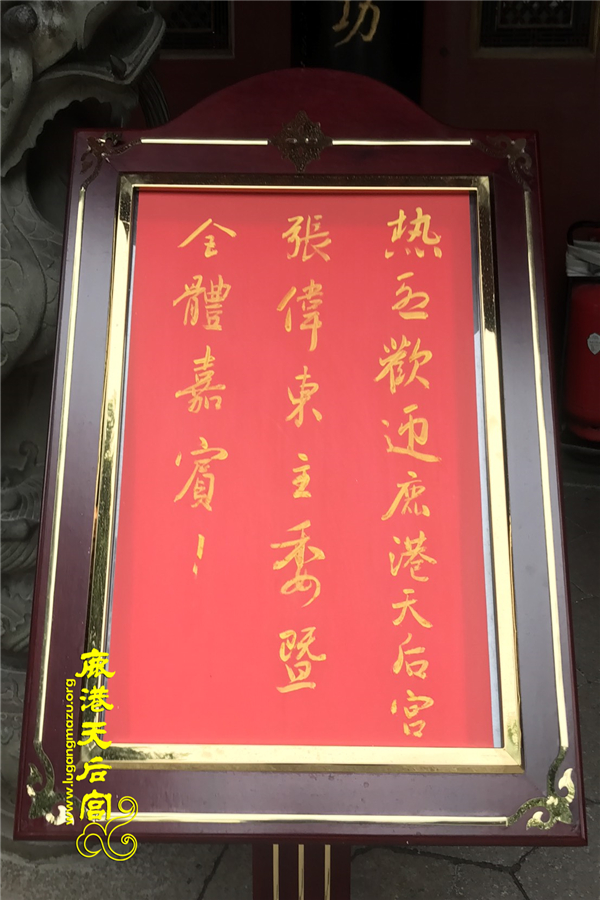 功
热烈歡迎鹿港天后宮
張偉東主委暨
全體嘉賓！
鹿港天后宮
www.lugangmazu.org